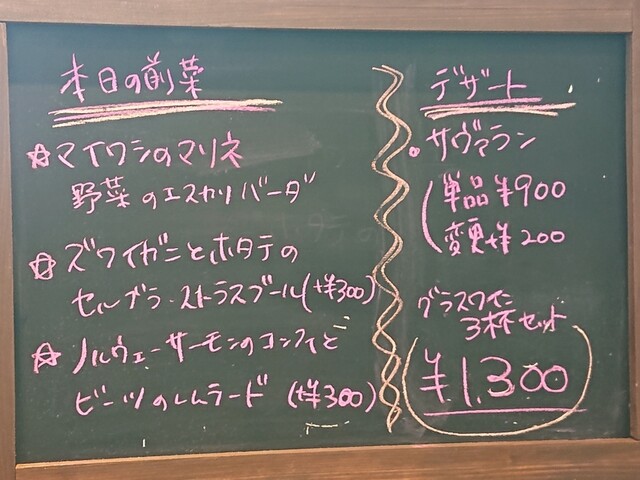 本日の前菜
☆マイワシのマリネ
野菜のエスカリバーダ
☆ズワイガニとホタテの
セルブラ・ストラスブール(+¥300)
☆ノルウェーサーモンのコンフィと
ビーツのレムラード(+¥300)
デザート
・サヴァラン
単品¥900
変更+¥200
グラスワイン
3杯セット
¥1,300